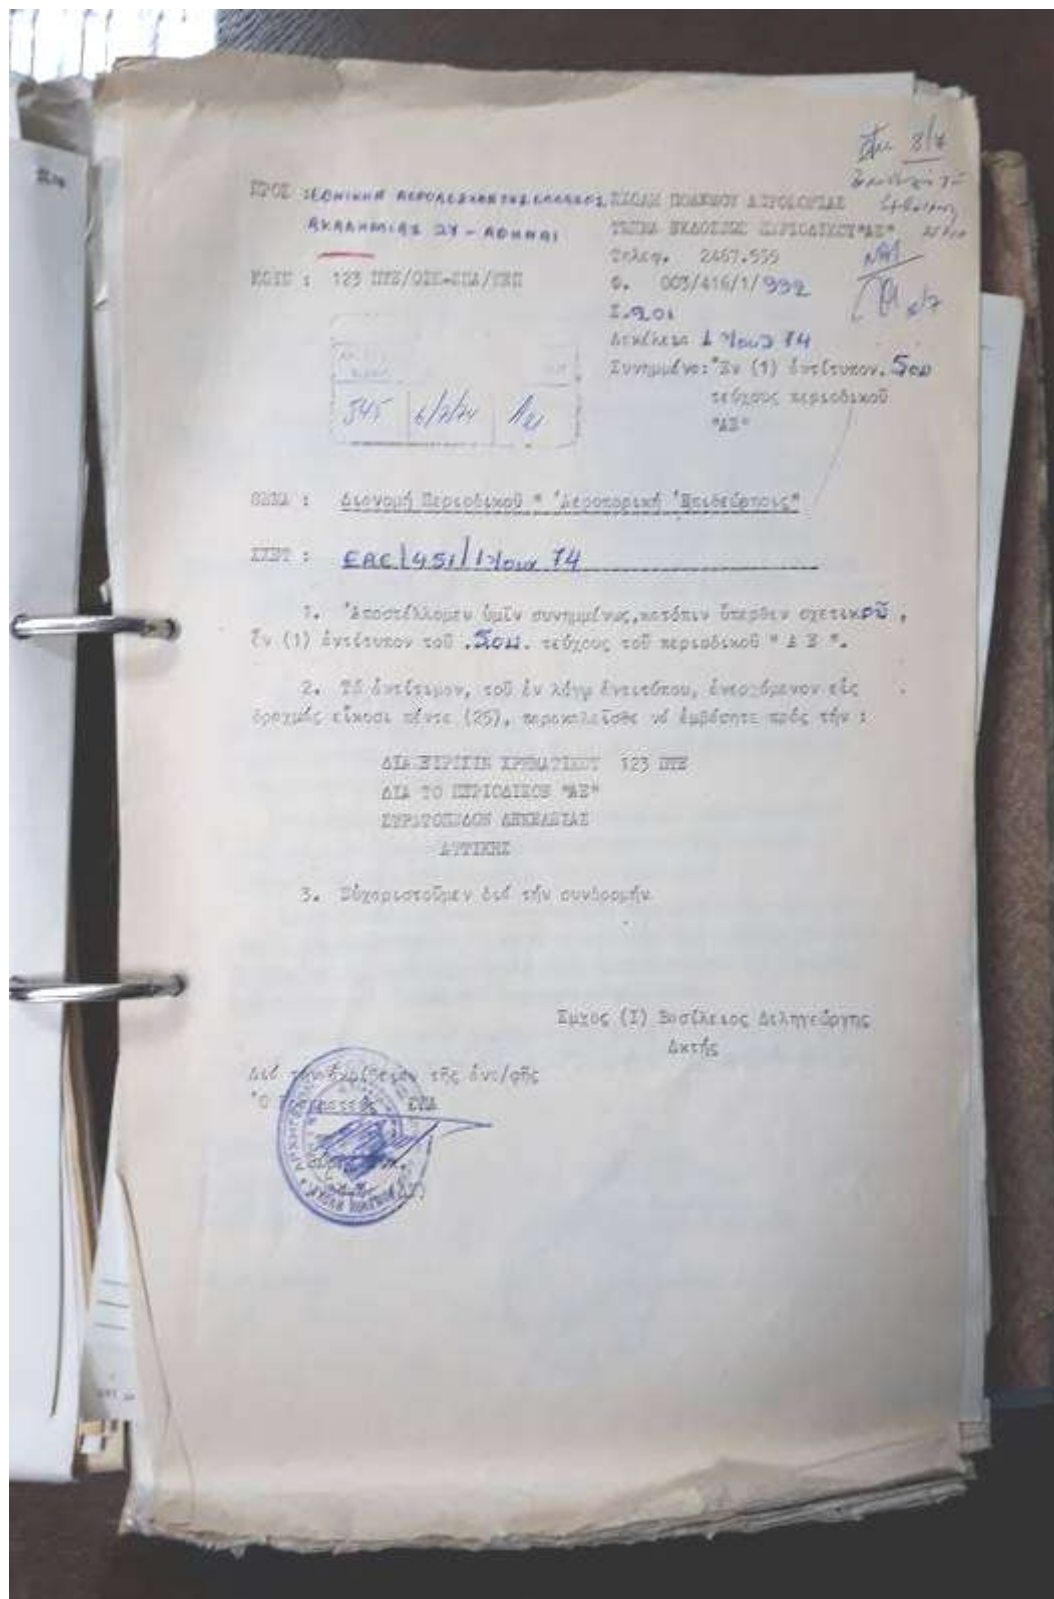 8/7
ΠΡΟΣ : ΕΘΝΙΚΗΝ ΑΕΡΟΛΕΣΧΗΝ ΤΗΣ ΕΛΛΑΔΟΣ
ΑΚΑΔΗΜΙΑΣ 27 - ΑΘΗΝΑΙ
ΚΟΙΝ : 123 ΠΤΕ/ΟΙΚ-ΣΠΑ/
ΣΧΟΛΗ ΠΟΛΕΜΟΥ ΑΕΡΟΠΟΡΙΑΣ
ΤΜΗΜΑ ΕΚΔΟΣΕΩΣ ΠΕΡΙΟΔΙΚΟΥ "ΑΕ"
Τηλεφ. 2467.559
Φ. 003/416/1/992
Σ.201
Δεκέλεια 1 74
Συνημμένα: Ἕν (1) ἀντίτυπον. 5ου
τεύχους περιοδικοῦ
"ΑΕ"
345
ΘΕΜΑ : Διανομή Περιοδικοῦ " Ἀεροπορική Ἐπιθεώρησις"
ΣΧΕΤ : ΕΑΕ/451/1 74
1. Ἀποστέλλομεν ὑμῖν συνημμένως, κατόπιν ὕπερθεν σχετικοῦ,
ἕν (1) ἀντίτυπον τοῦ .5ου. τεύχους τοῦ περιοδικοῦ " Α Ε ".
2. Τό ἀντίτιμον, τοῦ ἐν λόγῳ ἀντιτύπου, ἀνερχόμενον εἰς
δραχμάς εἴκοσι πέντε (25), παρακαλεῖσθε νά ἐμβάσητε πρός τήν :
ΔΙΑΧΕΙΡΙΣΙΝ ΧΡΗΜΑΤΙΚΟΥ 123 ΠΤΕ
ΔΙΑ ΤΟ ΠΕΡΙΟΔΙΚΟΝ "ΑΕ"
ΣΤΡΑΤΟΠΕΔΟΝ ΔΕΚΕΛΕΙΑΣ
ΑΤΤΙΚΗΣ
3. Εὐχαριστοῦμεν διά τήν συνδρομήν
Σμχος (Ι) Βασίλειος Δεληγεώργης
Δκτής
Διά τήν ἀκρίβειαν τῆς ἀντ/φῆς